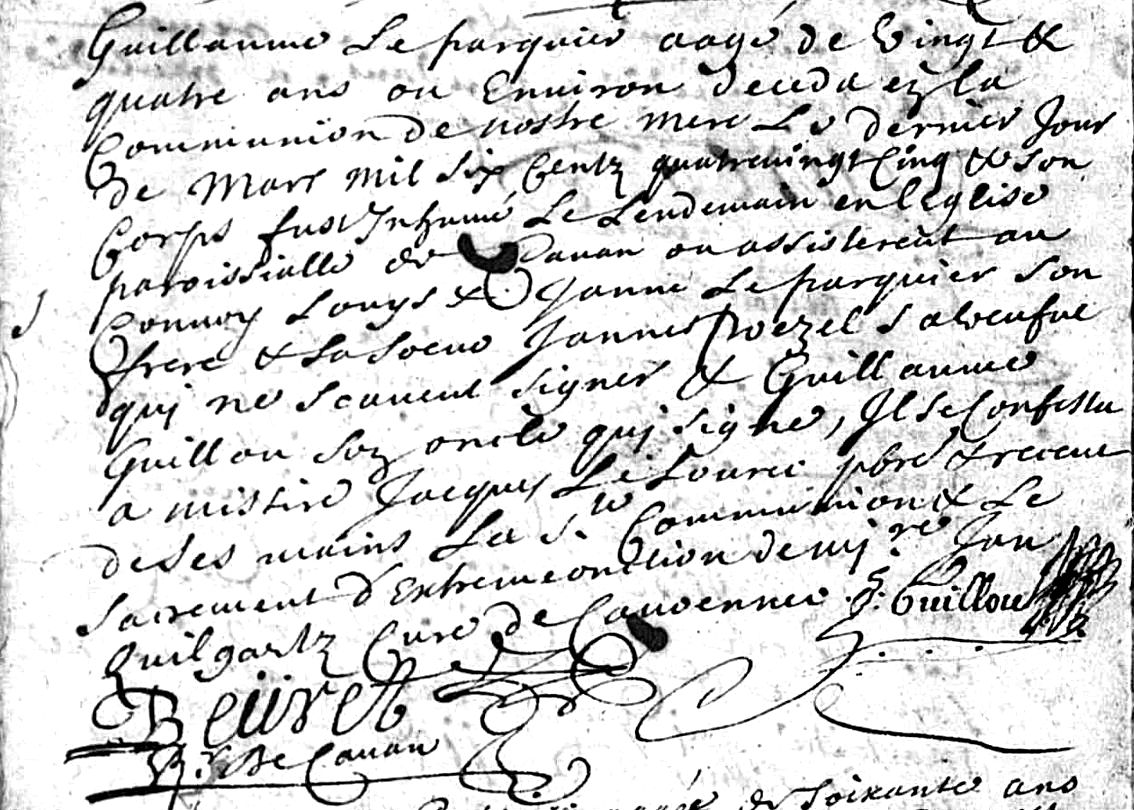 Guillaume Le parquier aagé de Vingt &
quatre ans ou Environ deceda en la
Communion de nostre mere Le dernier Jour
de Mars mil six Centz quatrevingt Cinq & son
Corps fust Inhumé Le Lendemain en l'Eglise
paroissialle de Cavan ou assisterent au
Convoy Louys & Janne Le parquier son
frere & sa soeur Janne sa veufve
qui ne scavent signer & Guillaume
Guillou son oncle qui signe, Il se Confessa
a missire Jacques Le pbre & receut
de ses mains La Ste Communion & Le
sacrement d'Extremeonction de mire Jan
Quilgartz Curé de G: Guillou
Beuret
Rr De Cavan
de soixante ans